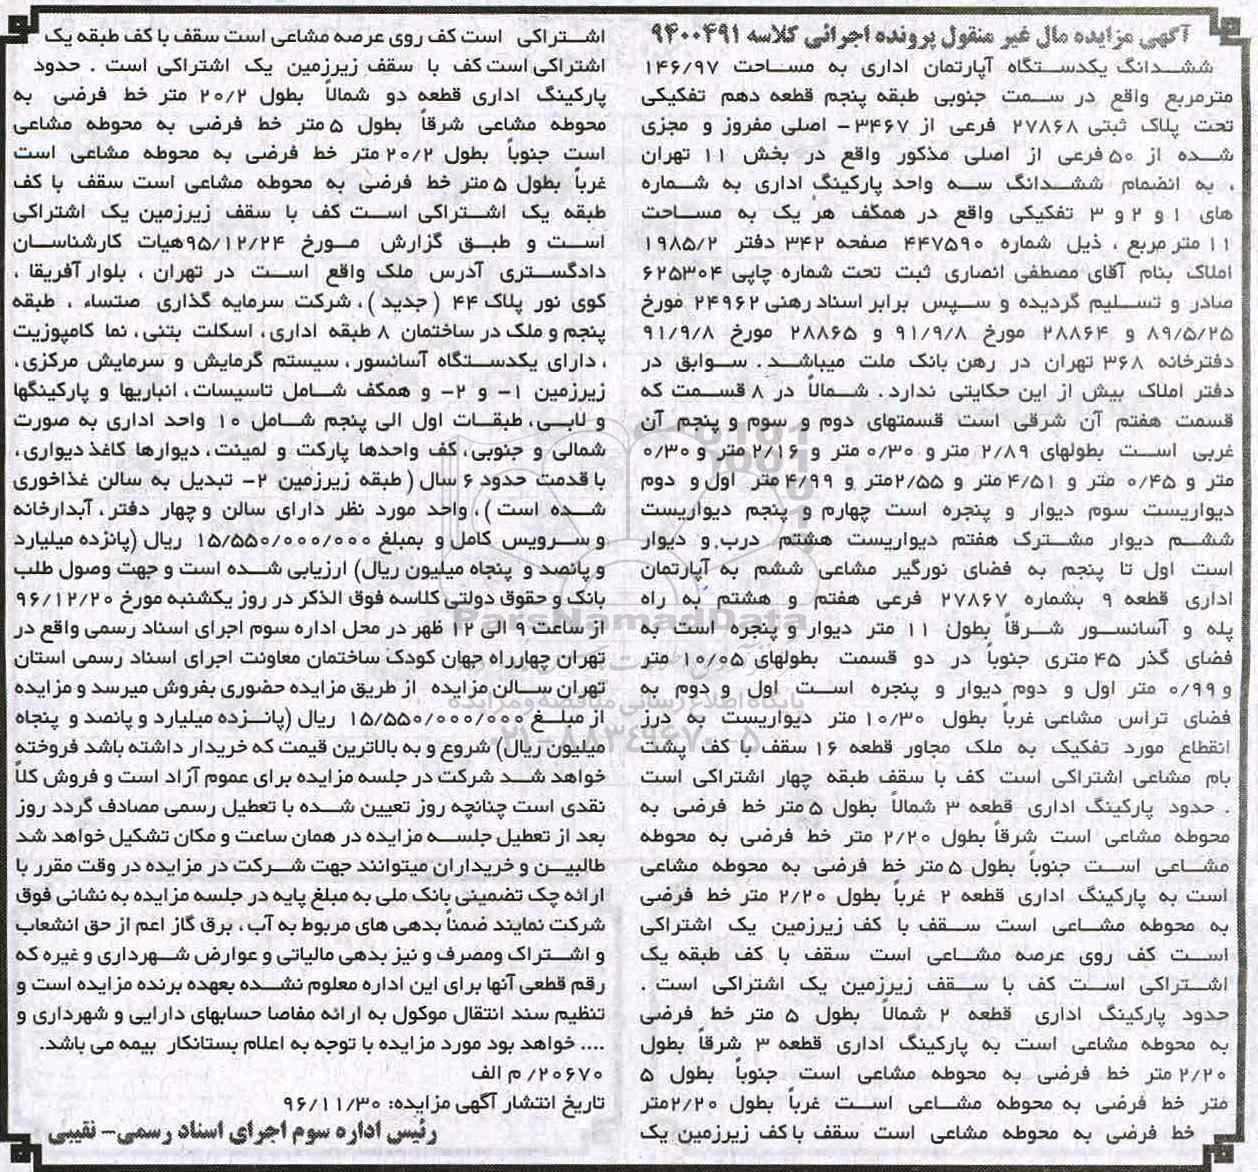 آگهی مزایده مال غیر منقول پرونده اجرائی کلاسه ۹۴۰۰۴۹۱
ششدانگ یکدستگاه آپارتمان اداری به مساحت ۱۴۶/۹۷
مترمربع واقع در سمت جنوبی طبقه پنجم قطعه دهم تفکیکی
تحت پلاک ثبتی ۲۷۸۶۸ فرعی از ۳۴۶۷- اصلی مفروز و مجزی
شده از ۵۰ فرعی از اصلی مذکور واقع در بخش ۱۱ تهران
، به انضمام ششدانگ سه واحد پارکینگ اداری به شماره
های ۱ و ۲ و ۳ تفکیکی واقع در همکف هر یک به مساحت
۱۱ متر مربع ، ذیل شماره ۴۴۷۵۹۰ صفحه ۳۴۲ دفتر ۱۹۸۵/۲
املاک بنام آقای مصطفی انصاری ثبت تحت شماره چاپی ۶۲۵۳۰۴
صادر و تسلیم گردیده و سپس برابر اسناد رهنی ۲۴۹۶۲ مورخ
۸۹/۵/۲۵ و ۲۸۸۶۴ مورخ ۹۱/۹/۸ و ۲۸۸۶۵ مورخ ۹۱/۹/۸
دفترخانه ۳۶۸ تهران در رهن بانک ملت میباشد. سوابق در
دفتر املاک بیش از این حکایتی ندارد. شمالاً در ۸ قسمت که
قسمت هفتم آن شرقی است قسمتهای دوم و سوم و پنجم آن
غربی است بطولهای ۲/۸۹ متر و ۰/۳۰ متر و ۲/۱۶ متر و ۰/۳۰
متر و ۰/۴۵ متر و ۴/۵۱ متر و ۲/۵۵متر و ۴/۹۹ متر اول و دوم
دیواریست سوم دیوار و پنجره است چهارم و پنجم دیواریست
ششم دیوار مشترک هفتم دیواریست هشتم درب و دیوار
است اول تا پنجم به فضای نورگیر مشاعی ششم به آپارتمان
اداری قطعه ۹ بشماره ۲۷۸۶۷ فرعی هفتم و هشتم به راه
پله و آسانسور شرقاً بطول ۱۱ متر دیوار و پنجره است به
فضای گذر ۴۵ متری جنوباً در دو قسمت بطولهای ۱۰/۰۵ متر
و ۰/۹۹ متر اول و دوم دیوار و پنجره است اول و دوم به
فضای تراس مشاعی غرباً بطول ۱۰/۳۰ متر دیواریست به درز
انقطاع مورد تفکیک به ملک مجاور قطعه ۱۶ سقف با کف پشت
بام مشاعی اشتراکی است کف با سقف طبقه چهار اشتراکی است
. حدود پارکینگ اداری قطعه ۳ شمالاً بطول ۵ متر خط فرضی به
محوطه مشاعی است شرقاً بطول ۲/۲۰ متر خط فرضی به محوطه
مشاعی است جنوباً بطول ۵ متر خط فرضی به محوطه مشاعی
است به پارکینگ اداری قطعه ۲ غرباً بطول ۲/۲۰ متر خط فرضی
به محوطه مشاعی است سقف با کف زیرزمین یک اشتراکی
است کف روی عرصه مشاعی است سقف با کف طبقه یک
اشتراکی است کف با سقف زیرزمین یک اشتراکی است .
حدود پارکینگ اداری قطعه ۲ شمالاً بطول ۵ متر خط فرضی
به محوطه مشاعی است به پارکینگ اداری قطعه ۳ شرقاً بطول
۲/۲۰ متر خط فرضی به محوطه مشاعی است جنوباً بطول ۵
متر خط فرضی به محوطه مشاعی است غرباً بطول ۲/۲۰متر
خط فرضی به محوطه مشاعی است سقف با کف زیرزمین یک
اشتراکی است کف روی عرصه مشاعی است سقف با کف طبقه یک
اشتراکی است کف با سقف زیرزمین یک اشتراکی است . حدود
پارکینگ اداری قطعه دو شمالاً بطول ۲۰/۲ متر خط فرضی به
محوطه مشاعی شرقاً بطول ۵ متر خط فرضی به محوطه مشاعی
است جنوباً بطول ۲۰/۲ متر خط فرضی به محوطه مشاعی است
غرباً بطول ۵ متر خط فرضی به محوطه مشاعی است سقف با کف
طبقه یک اشتراکی است کف با سقف زیرزمین یک اشتراکی
است و طبق گزارش مورخ ۹۵/۱۲/۲۴هیات کارشناسان
دادگستری آدرس ملک واقع است در تهران ، بلوار آفریقا ،
کوی نور پلاک ۴۴ (جدید)، شرکت سرمایه گذاری صتساء ، طبقه
پنجم و ملک در ساختمان ۸ طبقه اداری، اسکلت بتنی، نما کامپوزیت
، دارای یکدستگاه آسانسور، سیستم گرمایش و سرمایش مرکزی،
زیرزمین ۱- و ۲- و همکف شامل تاسیسات، انباریها و پارکینگها
و لابی، طبقات اول الی پنجم شامل ۱۰ واحد اداری به صورت
شمالی و جنوبی، کف واحدها پارکت و لمینت، دیوارها کاغذ دیواری،
با قدمت حدود ۶ سال (طبقه زیرزمین ۲- تبدیل به سالن غذاخوری
شده است)، واحد مورد نظر دارای سالن و چهار دفتر، آبدارخانه
و سرویس کامل و بمبلغ ۱۵/۵۵۰/۰۰۰/۰۰۰ ریال (پانزده میلیارد
و پانصد و پنجاه میلیون ریال) ارزیابی شده است و جهت وصول طلب
بانک و حقوق دولتی کلاسه فوق الذکر در روز یکشنبه مورخ ۹۶/۱۲/۲۰
از ساعت ۹ الی ۱۲ ظهر در محل اداره سوم اجرای اسناد رسمی واقع در
تهران چهارراه جهان کودک ساختمان معاونت اجرای اسناد رسمی استان
تهران سالن مزایده از طریق مزایده حضوری بفروش میرسد و مزایده
از مبلغ ۱۵/۵۵۰/۰۰۰/۰۰۰ ریال (پانزده میلیارد و پانصد و پنجاه
میلیون ریال) شروع و به بالاترین قیمت که خریدار داشته باشد فروخته
خواهد شد شرکت در جلسه مزایده برای عموم آزاد است و فروش کلاً
نقدی است چنانچه روز تعیین شده با تعطیل رسمی مصادف گردد روز
بعد از تعطیل جلسه مزایده در همان ساعت و مکان تشکیل خواهد شد
طالبین و خریداران میتوانند جهت شرکت در مزایده در وقت مقرر با
ارائه چک تضمینی بانک ملی به مبلغ پایه در جلسه مزایده به نشانی فوق
شرکت نمایند ضمناً بدهی های مربوط به آب، برق گاز اعم از حق انشعاب
و اشتراک ومصرف و نیز بدهی مالیاتی و عوارض شهرداری و غیره که
رقم قطعی آنها برای این اداره معلوم نشده بعهده برنده مزایده است و
تنظیم سند انتقال موکول به ارائه مفاصا حسابهای دارایی و شهرداری و
.... خواهد بود مورد مزایده با توجه به اعلام بستانکار بیمه می باشد.
۲۰۶۷۰/ م الف
تاریخ انتشار آگهی مزایده: ۹۶/۱۱/۳۰
رئیس اداره سوم اجرای اسناد رسمی- نقیبی
ParsNamadData
پایگاه اطلاع رسانی مناقصه و مزایده
۰۲۱-۸۸۳۴۹۶۷۰-۵